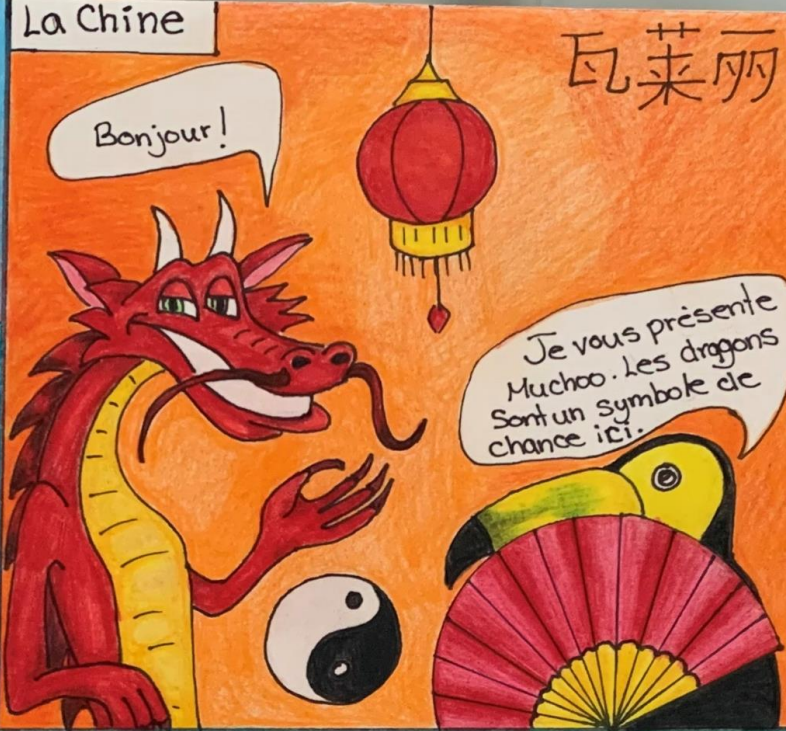 La Chine
瓦莱丽
Bonjour!
Je vous présente
Muchoo. Les dragons
sont un symbole de
chance ici.